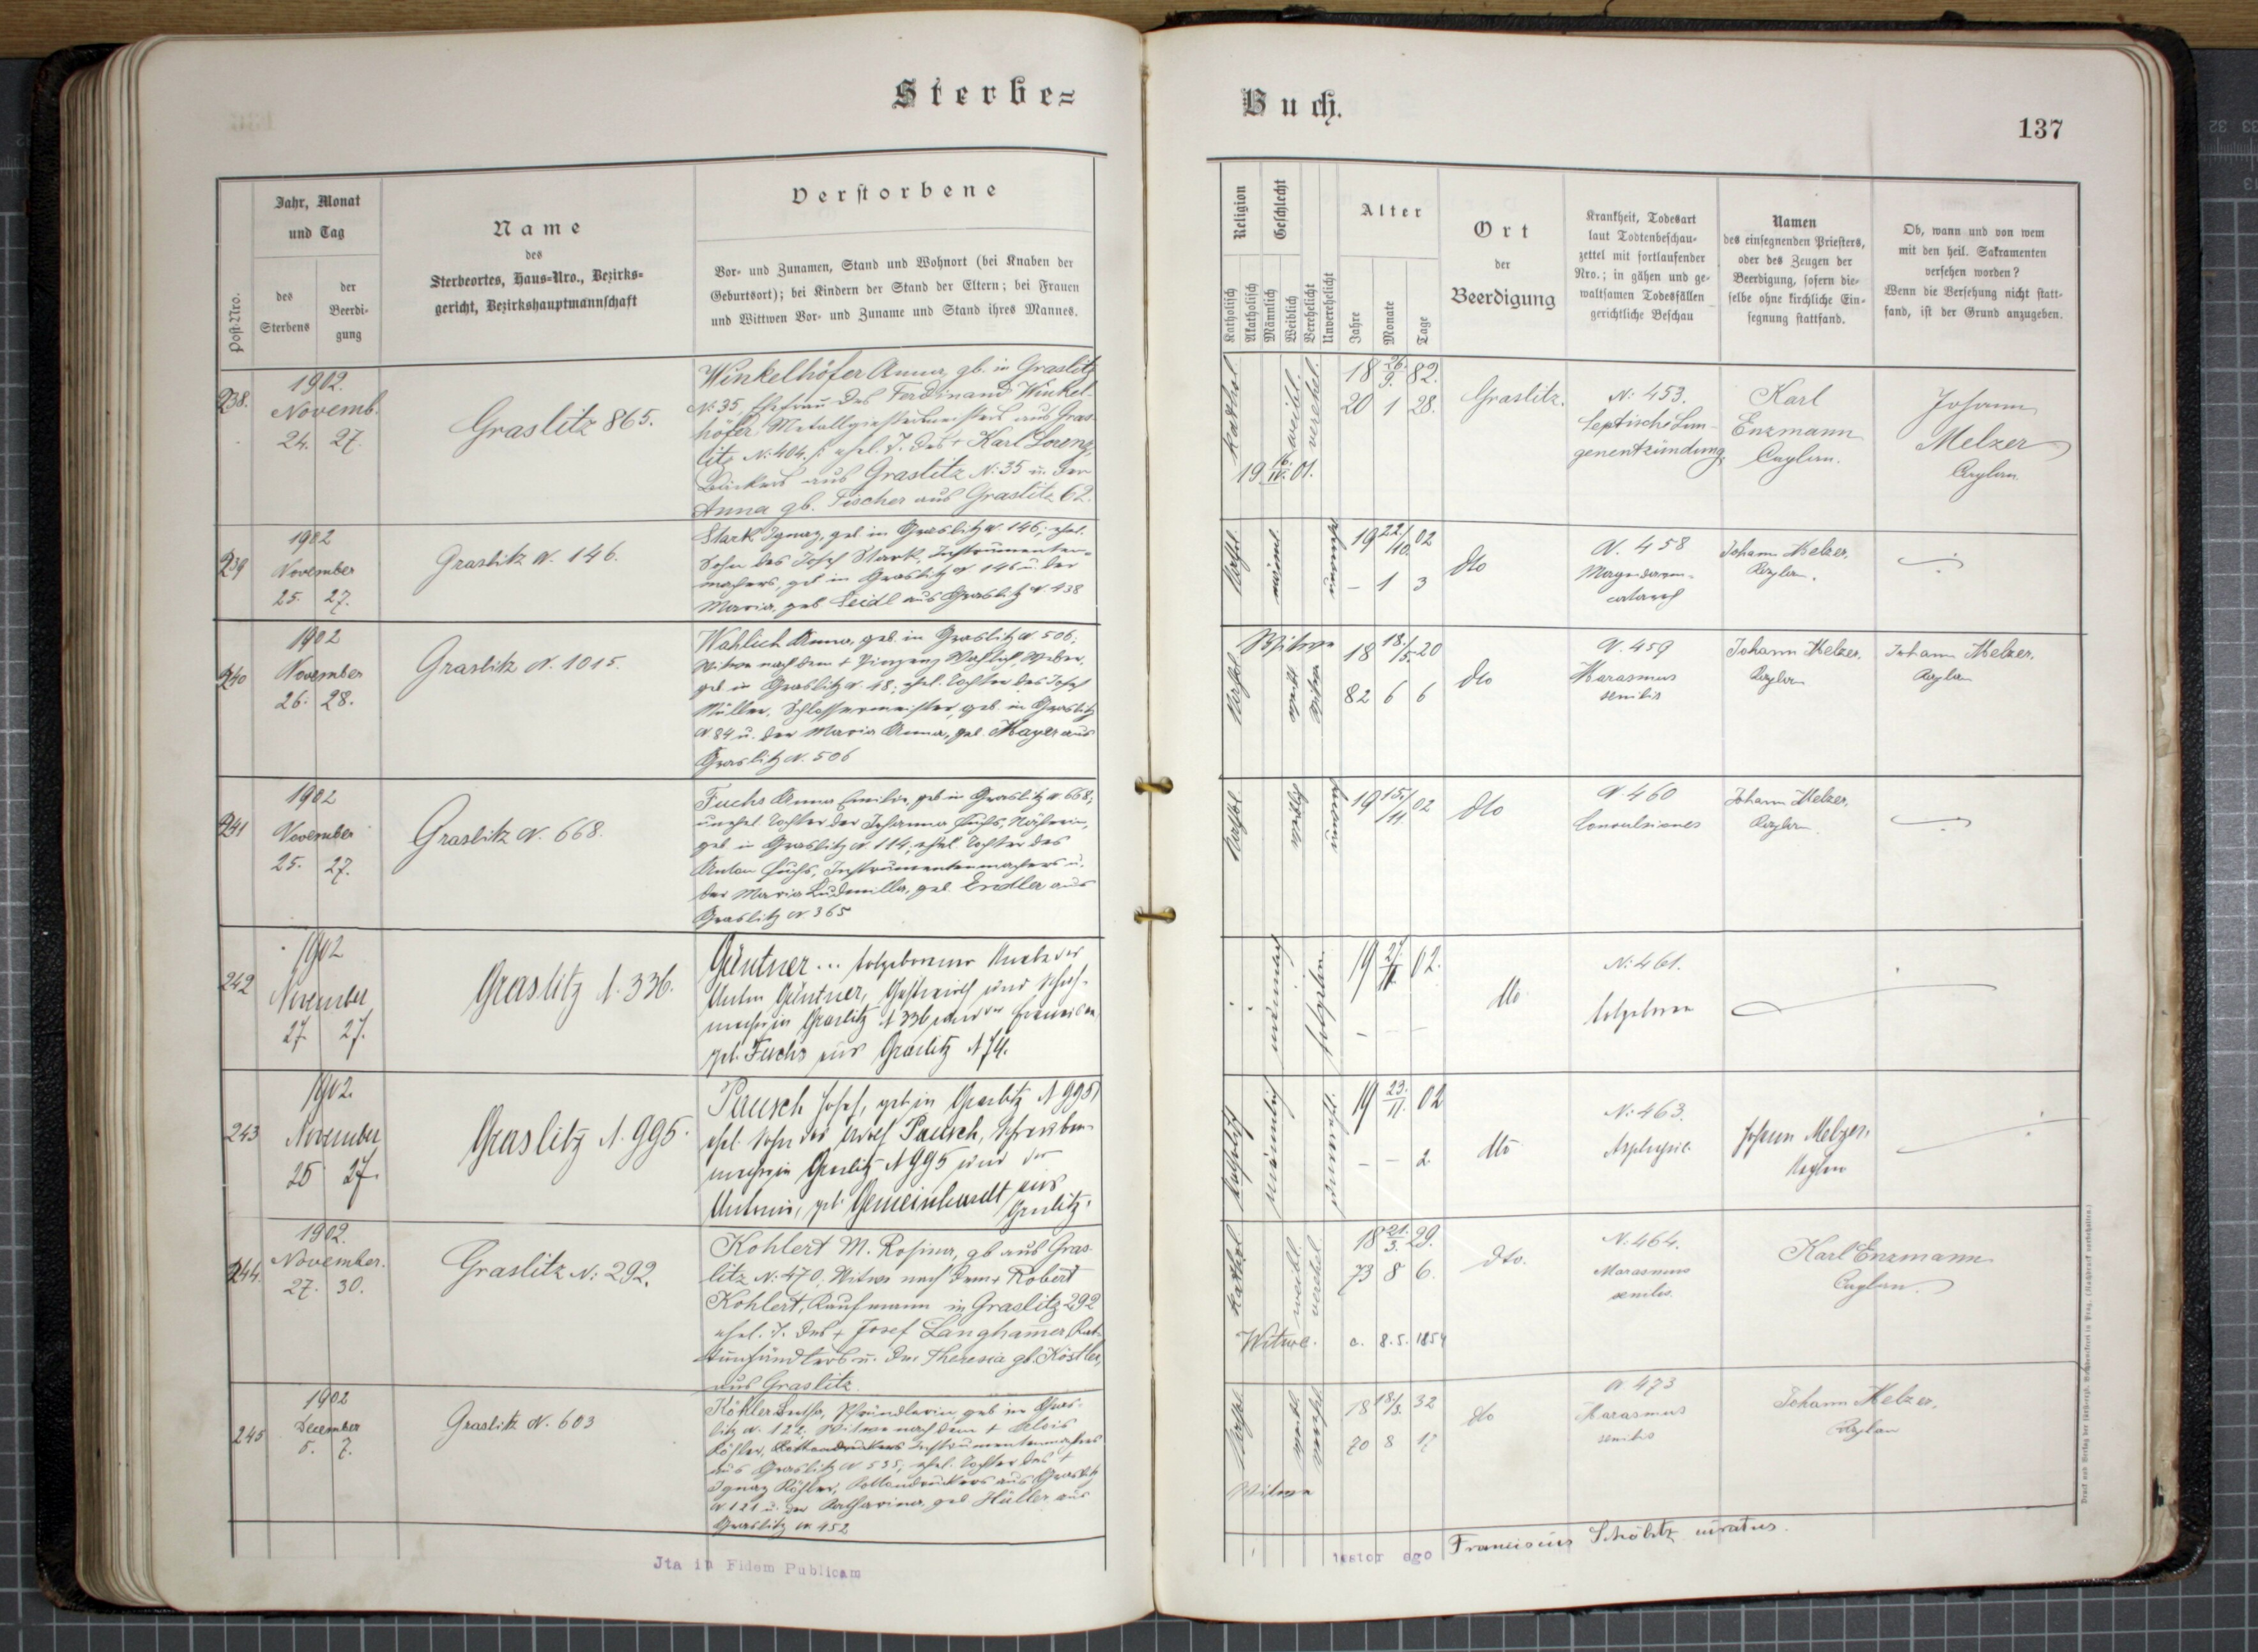 Sterbe=
Buch.
137
Post-Nro.
Jahr, Monat
und Tag
des
Sterbens
der
Beerdi-
gung
Name
des
Sterbeortes, Haus-Nro., Bezirks-
gericht, Bezirkshauptmannschaft
Verstorbene
Vor- und Zunamen, Stand und Wohnort (bei Knaben der
Geburtsort); bei Kindern der Stand der Eltern; bei Frauen
und Wittwen Vor- und Zuname und Stand ihres Mannes.
Religion
Katholisch
Akatholisch
Geschlecht
Männlich
Weiblich
Verehelicht
Unverehelicht
Alter
Jahre
Monate
Tage
Ort
der
Beerdigung
Krankheit, Todesart
laut Todtenbeschau-
zettel mit fortlaufender
Nro.; in gähen und ge-
waltsamen Todesfällen
gerichtliche Beschau
Namen
des einsegnenden Priesters,
oder des Zeugen der
Beerdigung, sofern die-
selbe ohne kirchliche Ein-
segnung stattfand.
Ob, wann und von wem
mit den heil. Sakramenten
versehen worden?
Wenn die Versehung nicht statt-
fand, ist der Grund anzugeben.
238.
1902.
Novemb.
24. 27.
Graslitz 865.
Winkelhöfer Anna, gb. in Graslitz
N: 35, Ehefrau des Ferdinand Winkel-
höfer, Metallgießermeisters aus Gras-
litz N: 404. ehel. T. des + Karl Lorenz,
Bäckers aus Graslitz N: 35 u. der
Anna gb. Fischer aus Graslitz 62.
kathol.
weibl.
verehel.
18 26./9. 82.
20 1 28.
19 16./IV. 01.
Graslitz.
N: 453.
Septische Lun-
genentzündung
Karl
Enzmann
Caplan.
Johann
Melzer
Caplan.
239
1902
November
25. 27.
Graslitz N. 146.
Stark Ignaz, geb. in Graslitz N. 146; ehel.
Sohn des Josef Stark, Instrumenten-
machers, geb. in Graslitz N. 146 u. der
Maria, geb. Seidl aus Graslitz N. 438
19 22/10. 02
- 1 3
dto
N. 458
Magendarm-
catarrh
Johann Melzer,
Kaplan.
240
1902
November
26. 28.
Graslitz N. 1015.
Wahlich Anna, geb. in Graslitz N. 506;
Witwe nach dem + Vinzenz Wahlich, Weber,
geb. in Graslitz N. 48; ehel. Tochter des Josef
Müller, Schlossermeister, geb. in Graslitz
N 84 u. der Maria Anna, geb. Mayer aus
Graslitz N. 506
Witwe
18 18./5. 20
82 6 6
dto
N. 459
Marasmus
senilis
Johann Melzer,
Kaplan
Johann Melzer,
Kaplan
241
1902
November
25. 27.
Graslitz N. 668.
Fuchs Anna Emilie, geb. in Graslitz N. 668;
unehel. Tochter der Johanna Fuchs, Näherin,
geb. in Graslitz N. 114, ehel. Tochter des
Anton Fuchs, Instrumentenmachers u.
der Maria Ludmilla, geb. Endler aus
Graslitz N 365
19 15./11 02
dto
N 460
Convulsiones
Johann Melzer,
Kaplan.
242
1902
November
27. 27.
Graslitz N. 336.
Güntner ... totgeborener Knabe des
Anton Güntner, Gastwirt und
in Graslitz N 336 und der
geb. Fuchs aus Graslitz N 74.
männlich
totgeboren
19 27./11 02.
- - -
dto
N: 461.
totgeboren
243
1902.
November
25 27.
Graslitz N. 995.
Pausch Josef, geb. in Graslitz N 995,
ehel. Sohn des Adolf Pausch,
in Graslitz N 995 und der
Antonia, geb. Gemeinhardt aus
Graslitz.
katholisch
männlich
unverehel.
19 23./11. 02
- - 2
dto
N: 463.
Asphyxie
Johann Melzer,
Kaplan
244.
1902.
November.
27. 30.
Graslitz N: 292.
Kohlert M. Rosina, gb. aus Gras-
litz N: 470, Witwe nach dem + Robert
Kohlert, Kaufmann in Graslitz 292
ehel. T. des + Josef Langhammer,
u. der Theresia gb. Köstler,
aus Graslitz.
kathol.
weibl.
verehel.
Witwe.
18 21./3. 29.
73 8 6.
c. 8. 5. 1854
dto.
N: 464.
Marasmus
senilis.
Karl Enzmann
Caplan.
245
1902
December
5. 7.
Graslitz N. 603
Köhler Luthe, Pfründlerin, geb. in Gras-
litz N. 122, Witwe nach dem + Alois
Köhler, Instrumentenmachers
aus Graslitz N 535, ehel. Tochter des +
Ignaz Köhler, Kottondruckers aus Graslitz
N. 121 u. der Katharina, geb. Hüller aus
Graslitz N 452
Witwe
18 18/3. 32
70 8 17
dto
N 473
Marasmus
senilis
Johann Melzer,
Kaplan
Jta in Fidem Publicam
testor ego
Franciscus Schöbitz curatus.